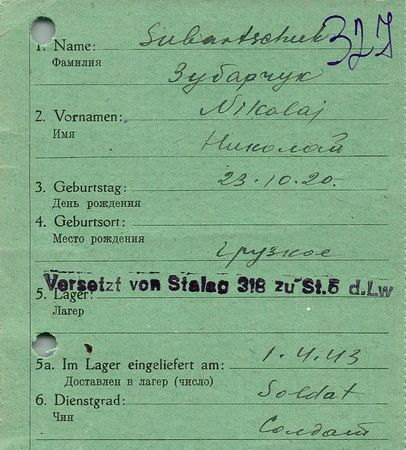 1. Name: Subartschuk 327
Фамилия Зубарчук
2. Vornamen: Nikolaj
Имя Николай
3. Geburtstag: 23.10.20.
День рождения
4. Geburtsort:
Место рождения Грузкое
Versetzt von Stalag 318 zu St.6 d.Lw
5. Lager:
Лагер
5a. Im Lager eingeliefert am: 1.4.43
Доставлен в лагер (число)
6. Dienstgrad: Soldat
Чин Солдат